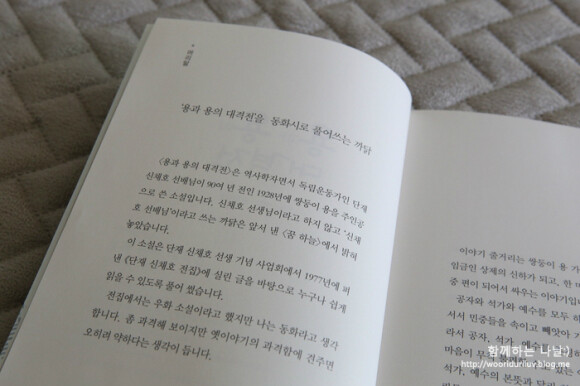 머리말
'용과 용의 대격전'을 동화시로 풀어쓰는 까닭
〈용과 용의 대격전〉은 역사학자면서 독립운동가인 단재
신채호 선배님이 90여 년 전인 1928년에 쌍둥이 용을 주인공
으로 쓴 소설입니다. 신채호 선생님이라고 하지 않고 '신채
호 선배님'이라고 쓰는 까닭은 앞서 낸 〈꿈 하늘〉에서 밝혀
놓았습니다.
이 소설은 단재 신채호 선생 기념 사업회에서 1977년에 펴
낸 《단재 신채호 전집》에 실린 글을 바탕으로 누구나 쉽게
읽을 수 있도록 풀어 썼습니다.
전집에서는 우화 소설이라고 했지만 나는 동화라고 생각
합니다. 좀 과격해 보이지만 옛이야기의 과격함에 견주면
오히려 약하다는 생각이 듭니다.
이야기 줄거리는 쌍둥이 용 가
임금인 상제의 신하가 되고, 한 마
중 편이 되어서 싸우는 이야기입
공자와 석가와 예수를 모두 하
서서 민중들을 속이고 빼앗아 가
라서 공자, 석가, 예수를
마음이 무
석가, 예수의 본뜻과 달리
함께하는 나날:)
http://wooriduriluv.blog.me